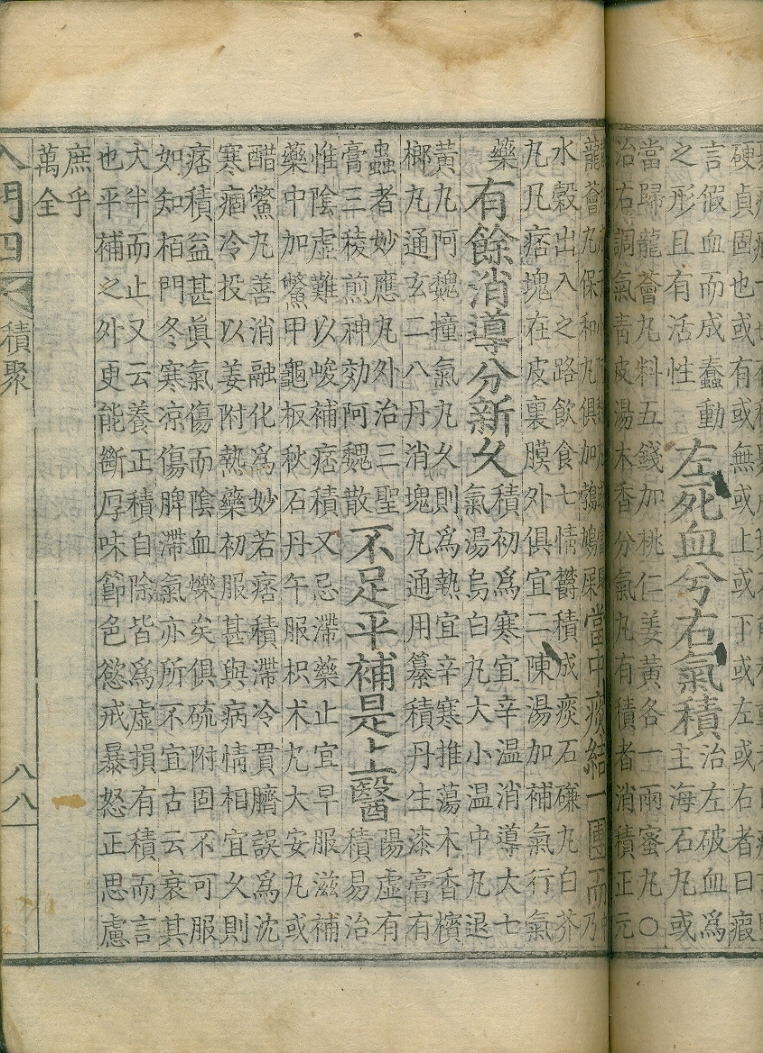 硬貞固也或有或無或止或下或左或右者曰瘕
言假血而成蠢動
之形且有活性
左死血兮右氣積
治左破血爲
主海石丸或
當歸龍薈丸料五錢加桃仁姜黃各一兩蜜丸○
治右調氣靑皮湯木香分氣丸有積者消積正元
龍薈丸保和丸俱加鵓鴿屎
當中痰結一團而
乃
水穀出入之路飮食七情欝積成痰石礆丸白芥
丸凡痞塊在皮裏膜外俱宜二陳湯加補氣行氣
藥
有餘消導分新久
積初爲寒宜辛溫消導大七
氣湯烏白丸大小溫中丸退
黃丸阿魏撞氣丸久則爲熱宜辛寒推蕩木香檳
榔丸通玄二八丹消塊丸通用纂積丹生漆膏有
蟲者妙應丸外治三聖
膏三稜煎神効阿魏散
不足平補是上醫
陽虛有
積易治
惟陰虛難以峻補痞積又忌滯藥止宜早服滋補
藥中加鱉甲龜板秋石丹午服枳术丸大安丸或
醋鱉丸善消融化爲妙若痞積滯冷貫臍誤爲沈
寒痼冷投以姜附熱藥初服甚與病情相宜久則
痞積益甚眞氣傷而陰血爍矣俱硫附固不可服
如知栢門冬寒凉傷脾滯氣亦所不宜古云衰其
大半而止又云養正積自除皆爲虛損有積而言
也平補之外更能斷厚味節色慾戒暴怒正思慮
庶乎
萬全
入門四 積聚 八八